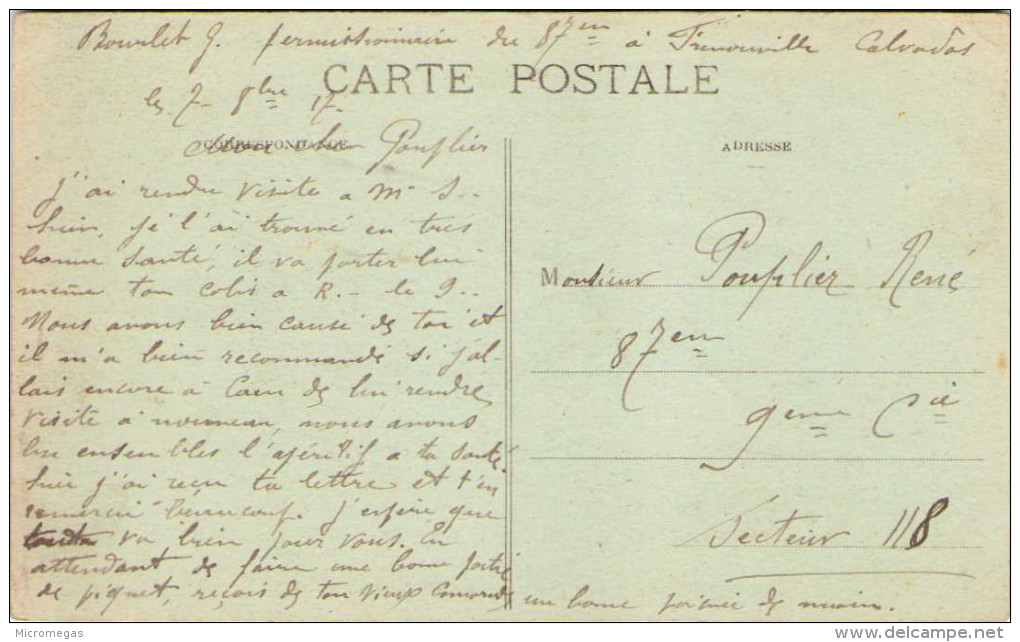 Bourlet G. permissionnaire du 87em à Frénouville Calvados
CARTE POSTALE
le 7 8bre 17
CORRESPONDANCE
Mon cher Pouplier
ADRESSE
J'ai rendu visite a Mr S..
hier, je l'ai trouvé en très
bonne santé, il va porter lui
même ton colis a R.- le 9..
Nous avons bien causé de toi et
il m'a bien recommandé si j'al-
lais encore à Caen de lui rendre
visite à nouveau, nous avons
bu ensembles l'apéritif a ta santé.
hier j'ai reçu ta lettre et t'en
remercie beaucoup. J'espère que
tout va bien pour vous. En
attendant de faire une bonne partie
de piquet, reçois de ton vieux camarade un bonne poignée de main.
Monsieur Pouplier René
87em
9eme Cie
Secteur 118
Micromegas
delcampe.net